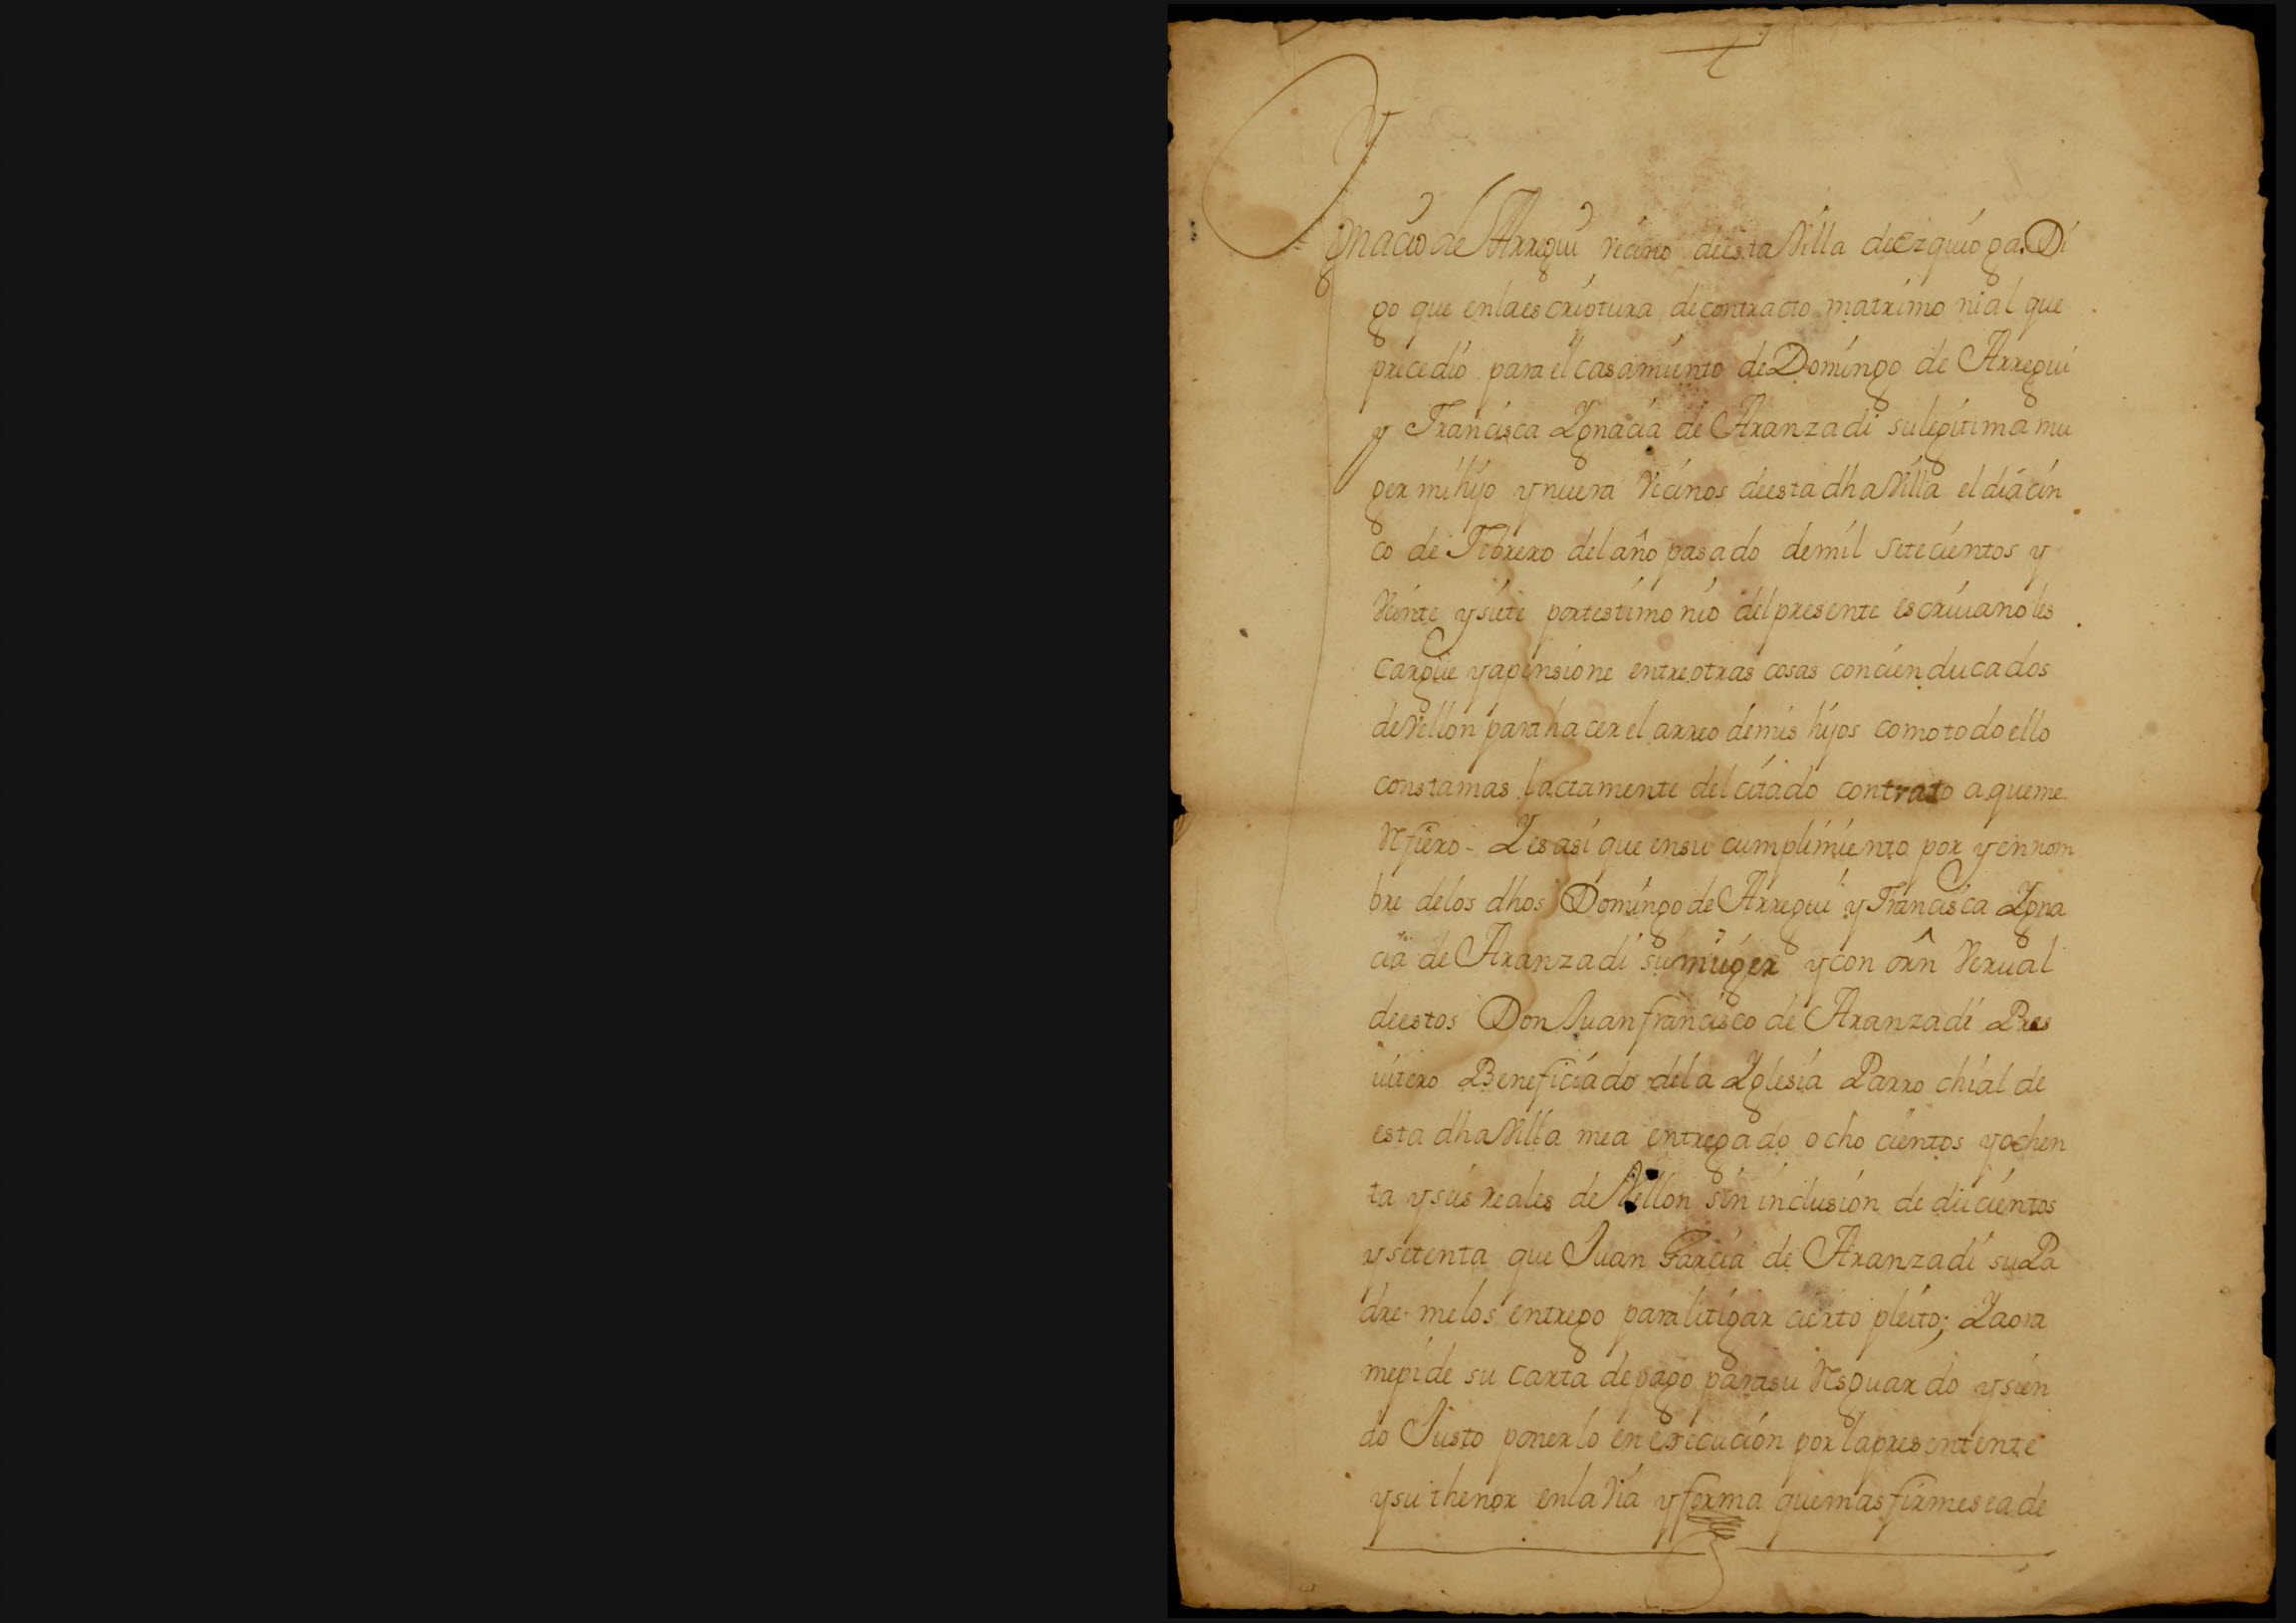 Ygnacio de Arregui vecino deesta Villa deezquioga. Di
go que enlaescriptura decontracto matrimo nial que
precedio para el casamiento deDomingo de Arregui
y Francisca Ygnacia de Aranzadi sulegitima mu
ger mi hijo ynuera Vecinos deesta dha Villa el dia cin
co de Febrero del año pasado demil setecientos y
Veinte ysiete portestimo nio delpresente escriuano les
cargue yapensione entreotras cosas concien ducados
deVellon para ha cer el arreo demis hijos comotodoello
constamas lactamente del citado contrato aqueme
Refiero - Yes asi que ensu cumplimiento por yennom
bre delos dhos Domingo de Arregui y Francisca Ygna
cia de Aranzadi sumuger ycon orn Verual
deestos Don Juan francisco de Aranzadi Pres
uitero Beneficiado dela Yglesia Parro chial de
esta dha Villa mea entregado ocho cientos yochen
ta yseis reales de Vellon sin inclusion de ducientos
ysetenta que Juan Garcia de Aranzadi suPa
dre melos entrego paralitigar cierto pleito; Yaora
mepide su carta depago parasu Resguardo ysien
do Justo ponerlo en execucion por lapresentente
ysu thenor enla Via yforma quemas firmeseade